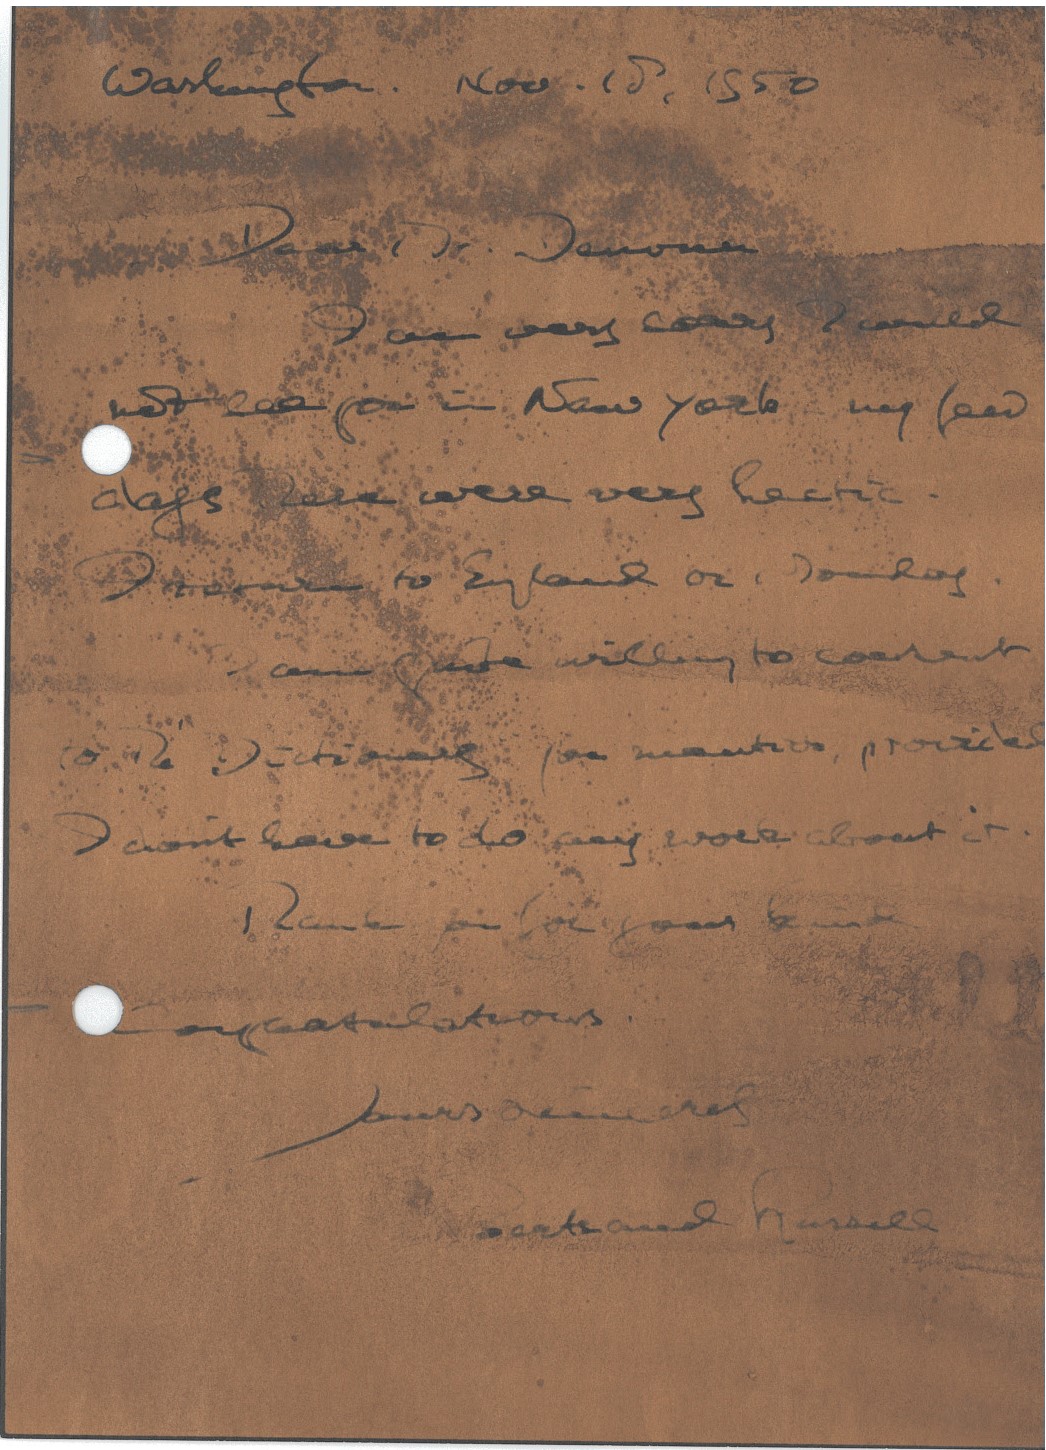 Washington. Nov. 18, 1950
Dear Mr. Denonn
I am very sorry I could
not see you in New York – my few
days there were very hectic.
I return to England on Monday.
I am quite willing to consent
to the Dictionary you mention, provided
I don't have to do any work about it.
Thank you for your kind
congratulations.
Yours sincerely
Bertrand Russell